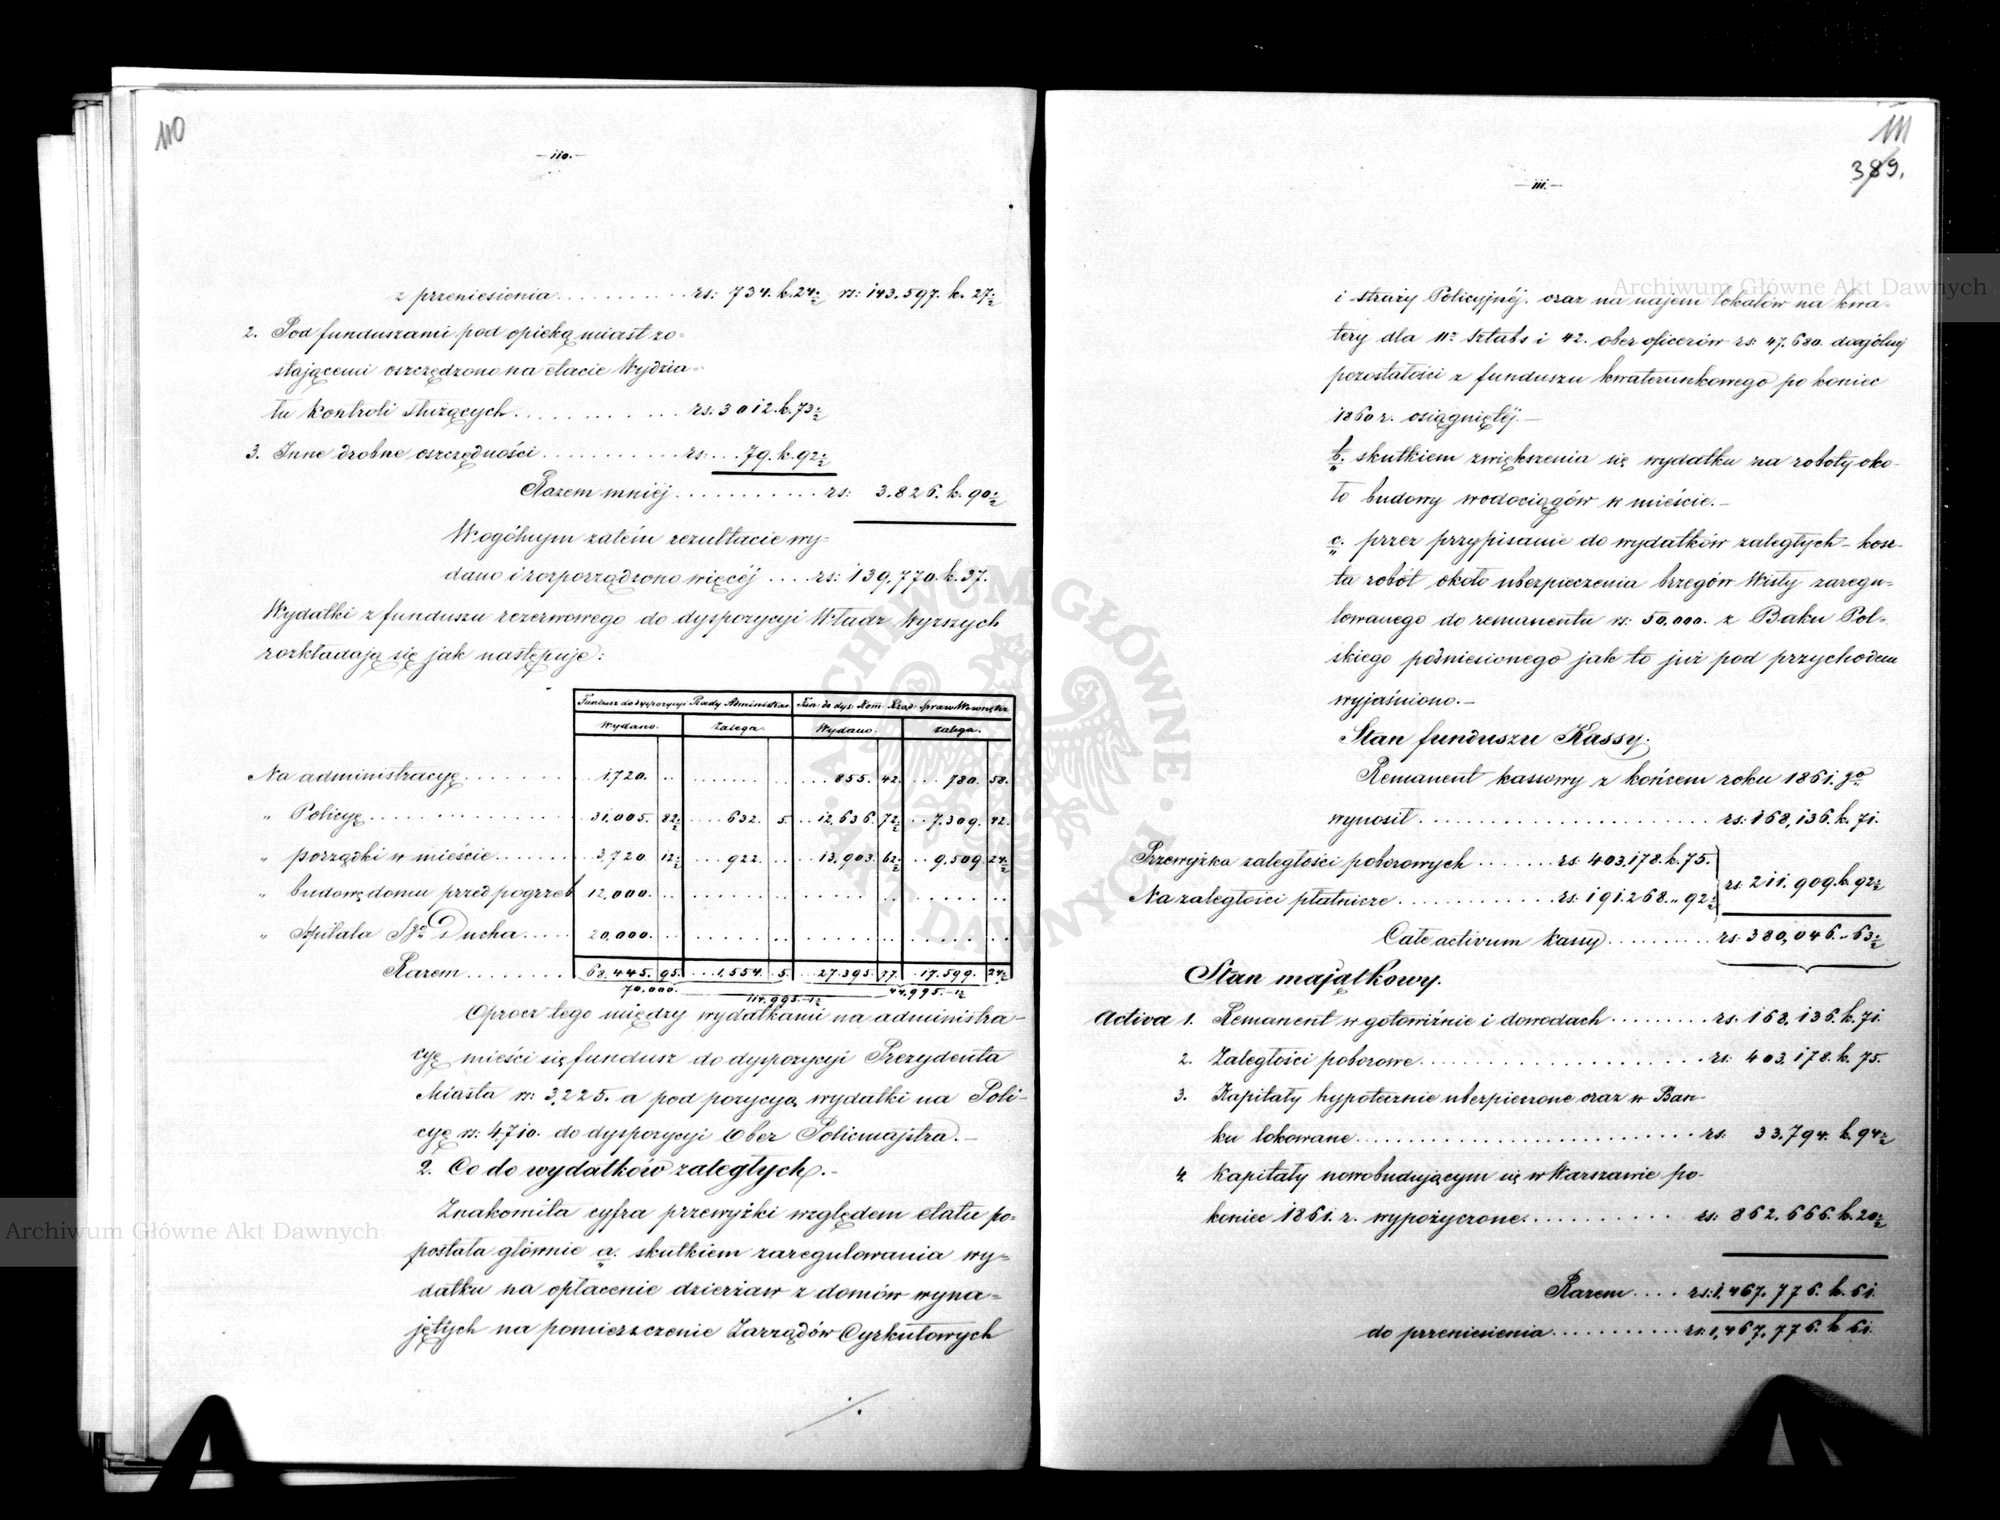 110
— 110. —
z przeniesienia . . . . . . . . . . . rs: 734. k. 24½ rs: 143.597. k. 27½
2. Pod funduszami pod opieką miast zo-
stającemi oszczędzono na etacie Wydzia-
łu Kontroli służących . . . . . . . . . . rs: 3012. k. 73½
3. Inne drobne oszczędności . . . . . . . . . . rs: . . . 79. k. 92½
Razem mniéj . . . . . . . . . . rs: 3.826. k. 90½
W ogólnym zatém rezultacie wy-
dano i rozporządzono więcéj . . . . rs: 139,770. k. 37.
Wydatki z funduszu rezerwowego do dyspozycyi Władz Wyższych
rozkładają się jak następuje:
Fundusz do dyspozycyi Rady Administrac Fun: do dys: Kom: Rząd: Spraw Wewnętrz
Wydano. Zalega. Wydano. Zalega.
Na administracyę . . . . . . . . 1,720. . . . . . . . . . . . 855. 42. . . 780. 58.
" Policyę . . . . . . . . . . . . 31,005. 82½ . . . 632. 5. . . 12,636. 72½ . . 7,309. 42.
" porządki w mieście . . . . . . . 3,720. 12½ . . . 922. . . . 13,903. 62½ . . 9,509. 24½
" budowę domu przedpogrzeb 12,000. . . . . . . . . . . .
" Szpitala Sgo Ducha . . . . . 20,000. . . . . . . . . . . .
Razem . . . . . . . . 68,445. 95. . . 1,554. 5. . . 27.395. 77. . 17.599. 24½
70,000. 114.995.–1½ 44.995.–1½
Oprócz tego między wydatkami na administra-
cyę mieści się fundusz do dyspozycyi Prezydenta
Miasta rs: 3,225. a pod pozycyą wydatki na Poli-
cyę rs: 4710. do dyspozycyi Ober Policmajstra. —
2. Co do wydatków zaległych. —
Znakomita cyfra przewyżki względem etatu po-
postała głównie a. skutkiem zaregulowania wy-
datku na opłacenie dzierżaw z domów wyna-
jętych na pomieszczenie Zarządów Cyrkułowych
111
389.
— 111. —
i straży Policyjnéj. oraz na najem lokalów na kwa-
tery dla 11re sztabs i 42. ober oficerów rs: 47.680. do ogólnéj
pozostałości z funduszu kwaterunkowego po koniec
1860 r. osiągniętéj. —
b. skutkiem zwiększenia się wydatku na roboty oko-
ło budowy wodociągów w mieście. —
c. przez przypisanie do wydatków zaległych — kosz-
ta robót około ubezpieczenia brzegów Wisły zaregu-
lowanego do remanentu rs: 50,000. z Baku Pol-
skiego podniesionego jak to już pod przychodem
wyjaśniono. —
Stan funduszu Kassy.
Remanent kassowy z końcem roku 1861. go
wynosił . . . . . . . . . . . . . . . . . . rs: 168,136. k. 71.
Przewyżka zaległości poborowych . . . . . . . rs: 403.178. k. 75.
rs: 211.909. k. 92½
Na zaległości płatnicze . . . . . . . . . . . rs: 191.268. „ 92½
Całe activum kassy . . . . . . . . . rs: 380,046. „ 63½
Stan majątkowy.
Activa 1. Remanent w gotowiźnie i dowodach . . . . . . . . rs: 168,136. k. 71.
2. Zaległości poborowe . . . . . . . . . . . . . . . . rs: 403,178. k. 75.
3. Kapitały hypotecznie ubezpieczone oraz w Ban-
ku lokowane . . . . . . . . . . . . . . . . . . . rs: 33.794. k. 94½
4. Kapitały nowobudującym się w Warszawie po-
koniec 1861. r. wypożyczone . . . . . . . . . . . rs: 862.666. k. 20½
Razem . . . . rs: 1,467.776. k. 61.
do przeniesienia . . . . . . . . . . . rs: 1,467.776. k. 61.
Archiwum Główne Akt Dawnych
Archiwum Główne Akt Dawnych
ARCHIWUM GŁÓWNE AKT DAWNYCH